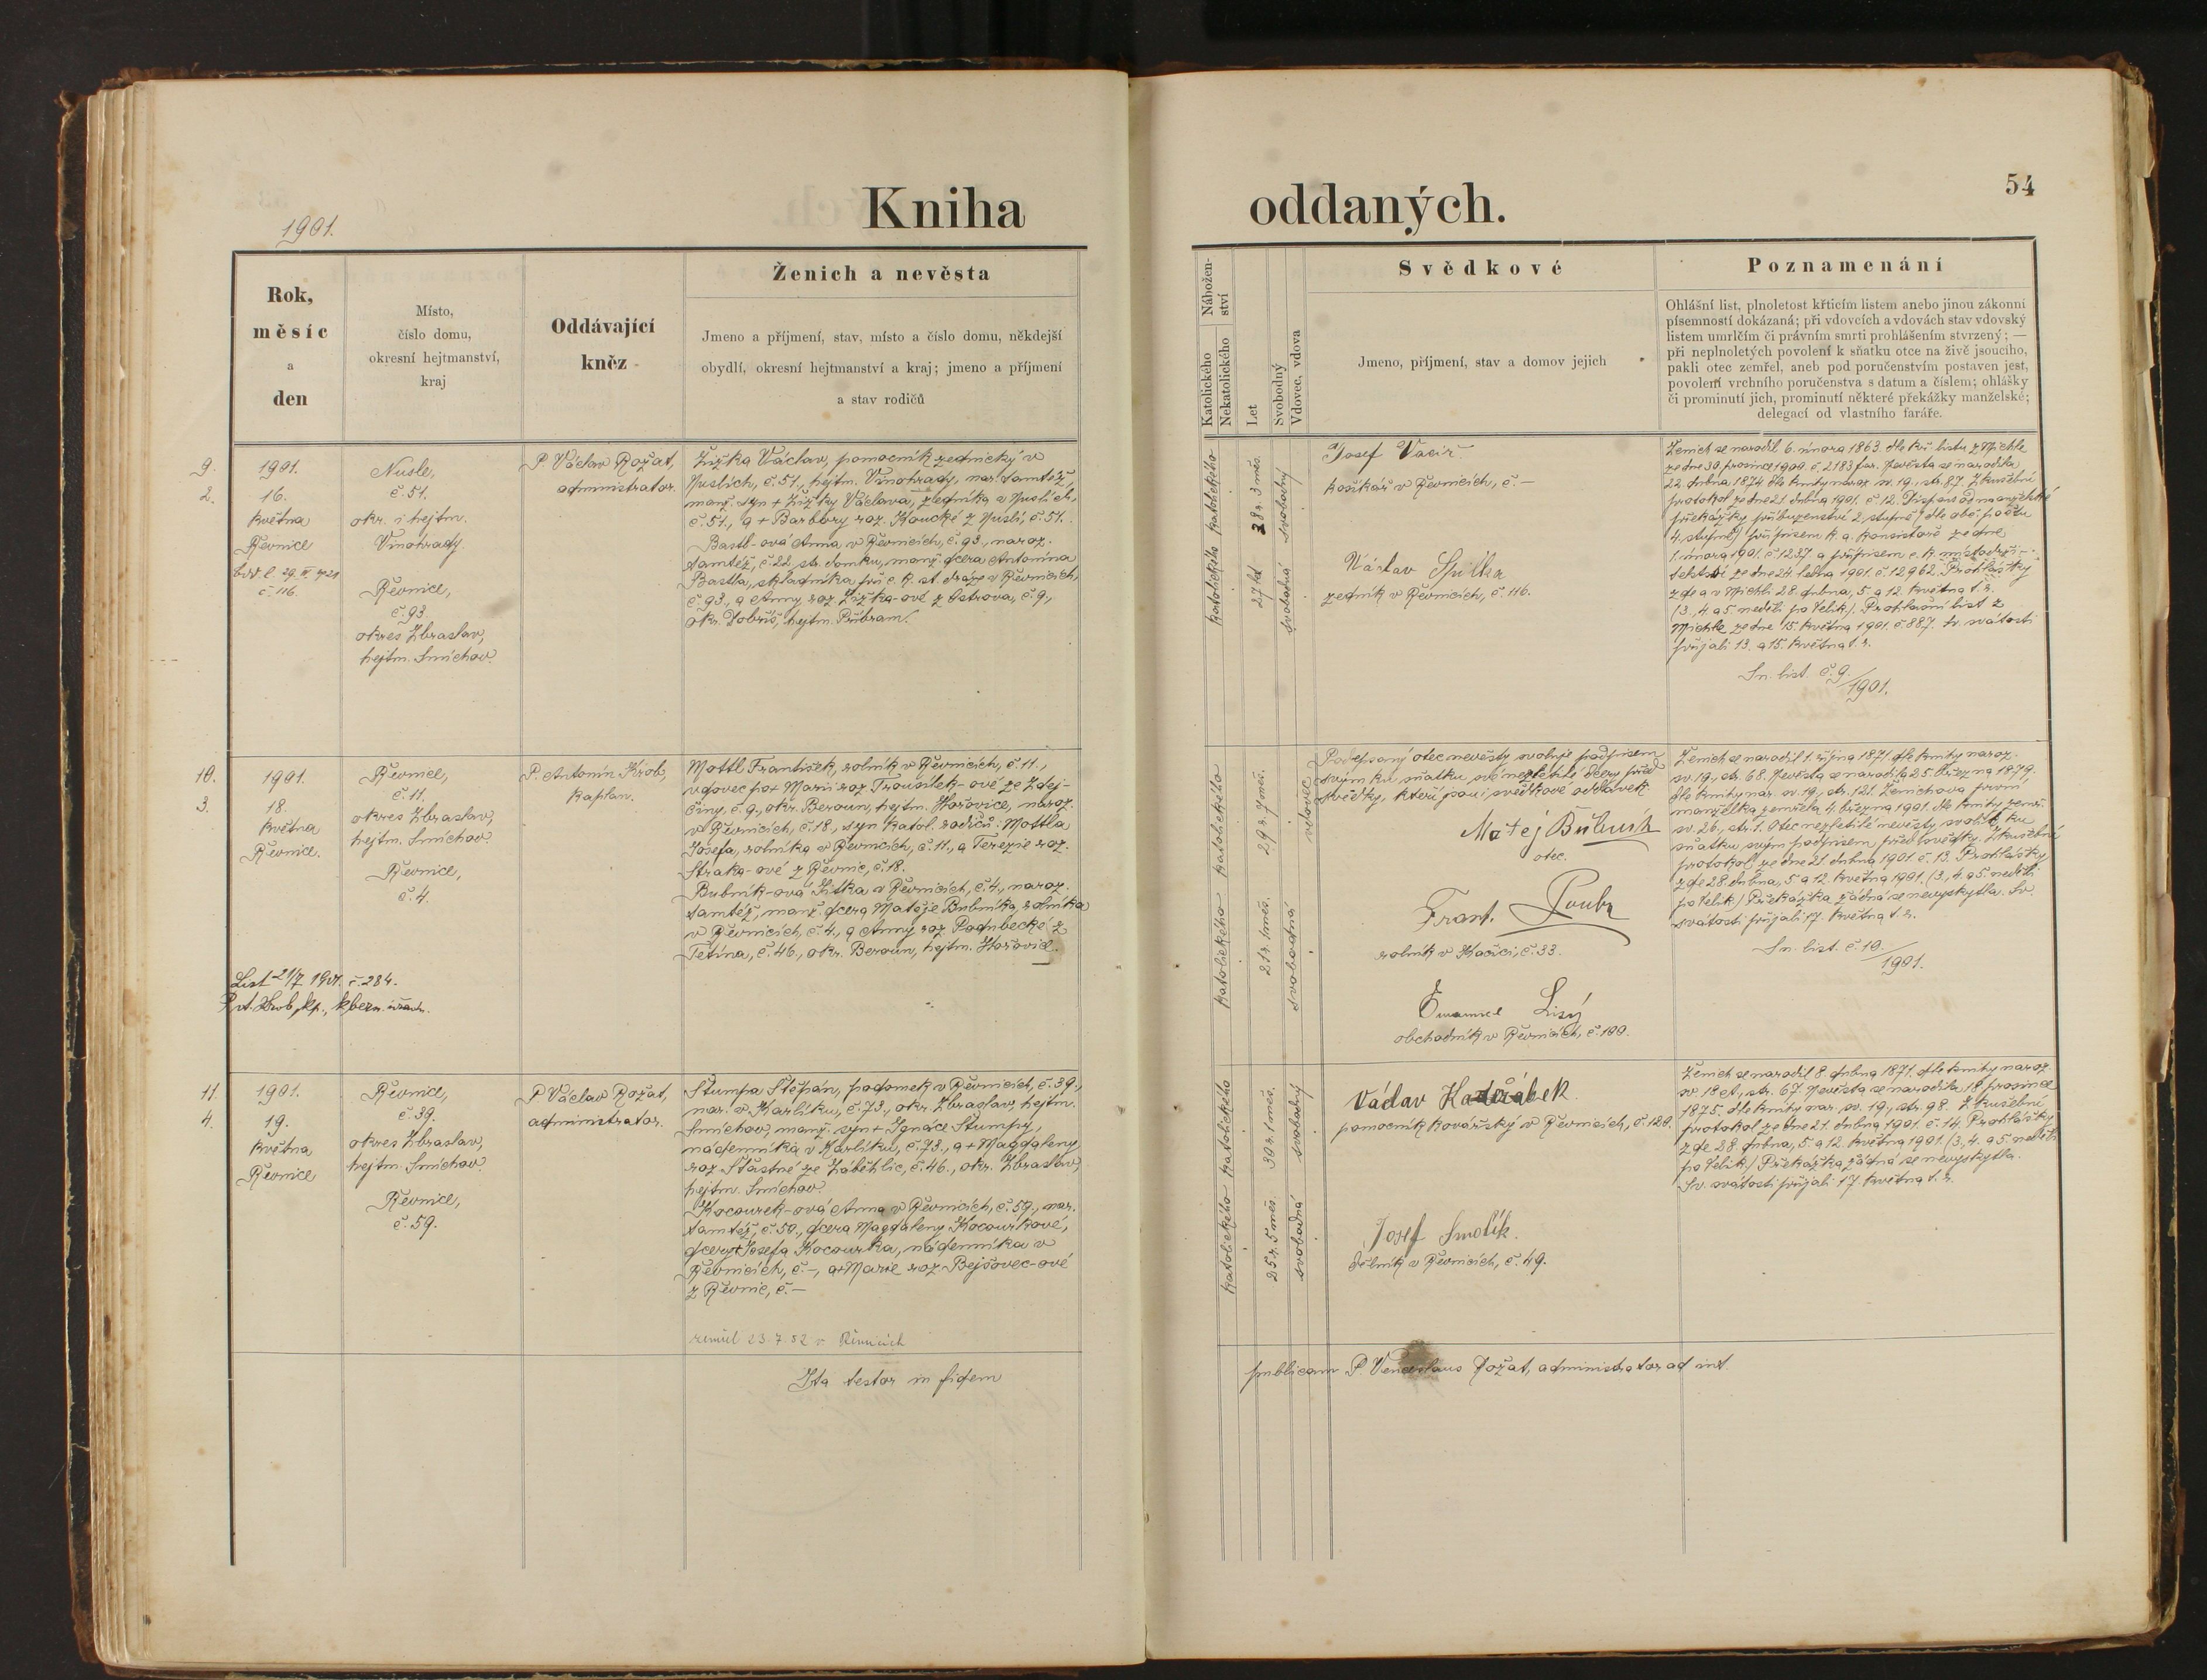 1901.
Kniha
oddaných.
54
Rok,
měsíc
a
den
Místo,
číslo domu,
okresní hejtmanství,
kraj
Oddávající
kněz
Ženich a nevěsta
Jmeno a příjmení, stav, místo a číslo domu, někdejší
obydlí, okresní hejtmanství a kraj; jmeno a příjmení
a stav rodičů
Nábožen-
ství
Katolického
Nekatolického
Let
Svobodný
Vdovec, vdova
Svědkové
Jmeno, příjmení, stav a domov jejich
Poznamenání
Ohlášní list, plnoletost křticím listem anebo jinou zákonní
písemností dokázaná; při vdovcích a vdovách stav vdovský
listem umrlčím či právním smrti prohlášením stvrzený; —
při neplnoletých povolení k sňatku otce na živě jsoucího,
pakli otec zemřel, aneb pod poručenstvím postaven jest,
povolení vrchního poručenstva s datum a číslem; ohlášky
či prominutí jich, prominutí některé překážky manželské;
delegací od vlastního faráře.
9.
2.
1901.
16.
května
Řevnice
č. 116.
Nusle,
č. 51.
okr. i hejtm.
Vinohrady.
Řevnice,
č. 93
okres Zbraslav,
hejtm. Smíchov.
P. Václav Rožat,
administrator.
Žižka Václav, pomocník zednický v
Nuslích, č. 51., hejtm. Vinohrady, nar. tamtéž,
manž. syn + Žižky Václava, zedníka v Nuslích,
č. 51., a + Barbory roz. Koucké z Nuslí, č. 51.
Bastl-ová Anna v Řevnicích, č. 93., naroz.
tamtéž, č. 22, str. domku, manž. dcera Antonína
Bastla, skladníka při c. k. st. dráze v Řevnicích,
č. 93., a Anny roz. Žižka-ové z Ostrova, č. 9,
okr. Dobříš, hejtm. Příbram.
katolického katolického
38 r. 3 měs.
27 let
svobodný
svobodná
Josef Vacíř
košíkář v Řevnicích, č. —
Václav
zedník v Řevnicích, č. 116.
Ženich se narodil 6. února 1863. dle kř. listu z Michle
ze dne 30. prosince 1900. č. 2183 far. Nevěsta se narodila
22. dubna 1874 dle knihy naroz. sv. 19., str. 87. Zkušební
protokol ze dne 21. dubna 1901. č. 12. Dispens od manželské
překážky příbuzenství 2. stupně (dle obč. počtu
4. stupně) přípisem k. a. konsistoře ze dne
1. února 1901. č. 1237 a přípisem c. k. místodrži-
telství ze dne 24. ledna 1901. č. 12962. Prohlášky
zde a v Michli 28. dubna, 5. a 12. května t. r.
(3., 4. a 5. neděli po Velik.). Prohlašní list z
Michle ze dne 15. května 1901. č. 887. Sv. svátosti
přijali 13. a 15. května t. r.
Sn. list. č. 9./1901.
10.
3.
1901.
18.
května
Řevnice.
Řevnice,
č. 11.
okres Zbraslav,
hejtm. Smíchov.
Řevnice,
č. 4.
P. Antonín Krob,
kaplan.
Mottl František, rolník v Řevnicích, č. 11.,
vdovec po + Marii roz. Trousílek-ové ze Zdej-
činy, č. 9., okr. Beroun, hejtm. Hořovice, naroz.
v Řevnicích, č. 18., syn katol. rodičů: Mottla
Josefa, rolníka v Řevnicích, č. 11., a Terezie roz.
Straka-ové z Řevnic, č. 18.
Bubník-ová Jitka v Řevnicích, č. 4., naroz.
tamtéž, manž. dcera Matěje Bubníka, rolníka
v Řevnicích, č. 4., a Anny roz. Podubecké z
Tetína, č. 46., okr. Beroun, hejtm. Hořovice.
List 21/7 1901. č. 284.
katolického katolického
29 r. 7 měs.
21 r. 1 měs.
vdovec
svobodná
Podepsaný otec nevěsty svoluje podpisem
svým ku sňatku své nezletilé dcery před
svědky, kteří jsou i svědkové oddavek.
Matěj Bubník
otec.
Frant. Poubr
rolník v Kačici, č. 33.
Emanuel Lisý
obchodník v Řevnicích, č. 100.
Ženich se narodil 1. října 1871. dle knihy naroz.
sv. 19., str. 68. Nevěsta se narodila 25. března 1879.
dle knihy nar. sv. 19., str. 121. Ženichova první
manželka zemřela 4. března 1901. dle knihy zemř.
sv. 26., str. 1. Otec nezletilé nevěsty svolil ku
sňatku svým podpisem před svědky. Zkušební
protokol ze dne 21. dubna 1901. č. 13. Prohlášky
zde 28. dubna, 5. a 12. května 1901. (3., 4. a 5. neděli
po Velik.) Překážka žádná se nevyskytla. Sv.
svátosti přijali 17. května t. r.
Sn. list. č. 10./1901.
11.
4.
1901.
19.
května
Řevnice
Řevnice,
č. 39.
okres Zbraslav,
hejtm. Smíchov.
Řevnice,
č. 59.
P. Václav Rožat,
administrator.
Štumpa Štěpán, podomek v Řevnicích, č. 39.,
nar. v Karlíku, č. 73., okr. Zbraslav, hejtm.
Smíchov, manž. syn + Ignáce Štumpy,
nádenníka v Karlíku, č. 73., a + Magdaleny
roz. Šťastné ze Záběhlic, č. 46., okr. Zbraslav,
hejtm. Smíchov.
Kocourek-ová Anna v Řevnicích, č. 59., nar.
tamtéž, č. 50., dcera Magdaleny Kocourkové,
dcery + Josefa Kocourka, nádenníka v
Řevnicích, č. —, a + Marie roz. Bejšovec-ové
z Řevnic, č. —
zemřel 23.7.52 v Řevnicích
katolického katolického
30 r. 1 měs.
25 r. 5 měs.
svobodný
svobodná
Václav
pomocník kovářský v Řevnicích, č. 120.
Josef Smolík.
dělník v Řevnicích, č. 49.
Ženich se narodil 8. dubna 1871. dle knihy naroz.
sv. 18 et, str. 67. Nevěsta se narodila 18 prosince
1875. dle knihy nar. sv. 19., str. 98. Zkušební
protokol ze dne 21. dubna 1901. č. 14. Prohlášky
zde 28. dubna, 5. a 12. května 1901. (3., 4. a 5. neděli
po Velik.) Překážka žádná se nevyskytla.
Sv. svátosti přijali 17. května t. r.
Ita testor in fidem
publicam P. Venceslaus Rožat, administrator ad int.